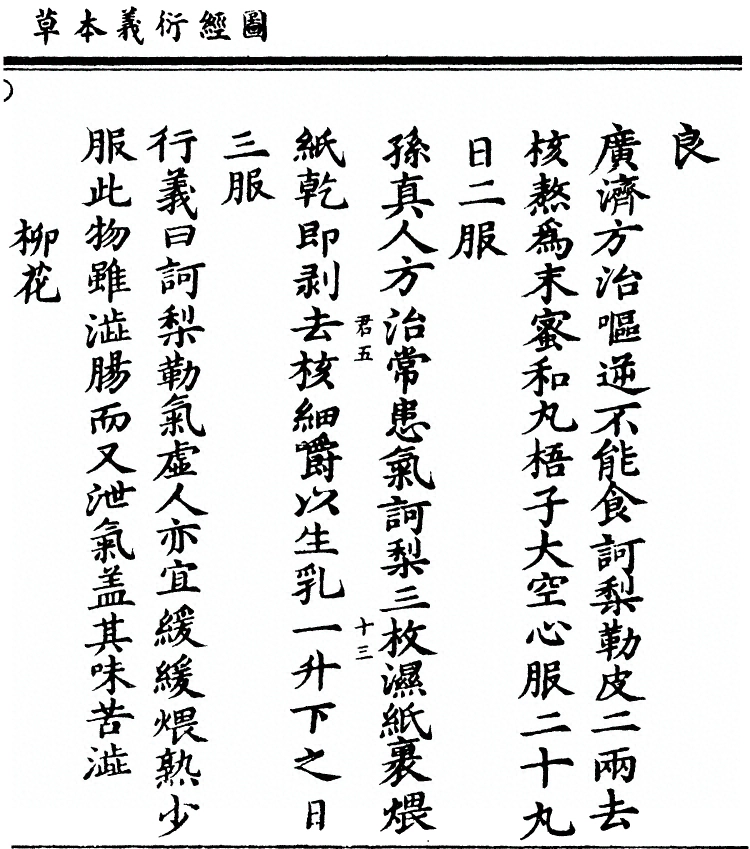 圖經衍義本草
良
廣濟方治嘔逆不能食訶梨勒皮二兩去
核熬爲末蜜和丸梧子大空心服二十丸
日二服
孫真人方治常患氣訶梨三枚濕紙裹煨
君五
十三
紙乾即剥去核細嚼以生乳一升下之日
三服
行義曰訶梨勒氣虛人亦宜緩緩煨熟少
服此物雖澁腸而又泄氣盖其味苦澁
柳花